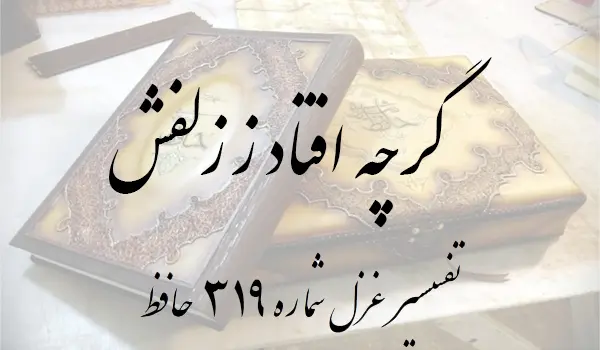 گرچه افتاد ز زلفش
تفسیر غزل شماره ۳۱۹ حافظ